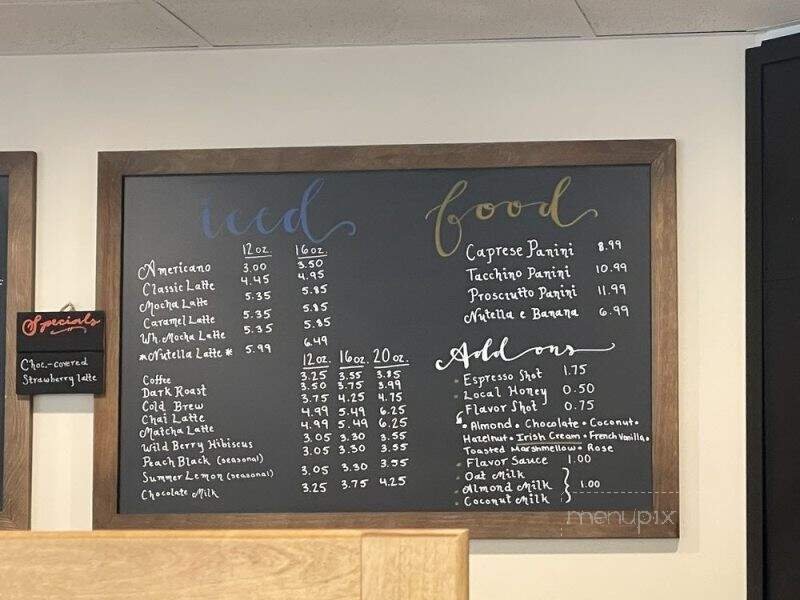 Specials
Choc.-covered
Strawberry latte
iced
12 oz. 16 oz.
Americano 3.00 3.50
Classic Latte 4.45 4.95
Mocha Latte 5.35 5.85
Caramel Latte 5.35 5.85
Wh. Mocha Latte 5.35 5.85
*Nutella Latte* 5.99 6.49
12 oz. 16 oz. 20 oz.
Coffee 3.25 3.55 3.85
Dark Roast 3.50 3.75 3.99
Cold Brew 3.75 4.25 4.75
Chai Latte 4.99 5.49 6.25
Matcha Latte 4.99 5.49 6.25
Wild Berry Hibiscus 3.05 3.30 3.55
Peach Black (seasonal) 3.05 3.30 3.55
Summer Lemon (seasonal) 3.05 3.30 3.55
Chocolate Milk 3.25 3.75 4.25
food
Caprese Panini 8.99
Tacchino Panini 10.99
Prosciutto Panini 11.99
Nutella e Banana 6.99
Add ons
Espresso Shot 1.75
Local Honey 0.50
Flavor Shot 0.75
• Almond • Chocolate • Coconut •
Hazelnut • Irish Cream • French Vanilla •
Toasted Marshmellow • Rose
Flavor Sauce 1.00
Oat Milk
Almond Milk } 1.00
Coconut Milk
menupix